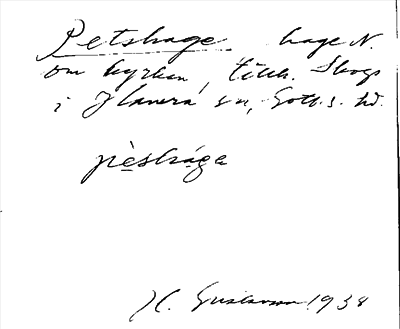 Petshage hage N.
om kyrkan, tillh. Skogs
i Hamra sn, Gotl. s. hd.
pèshága
H. Gustavson 1938